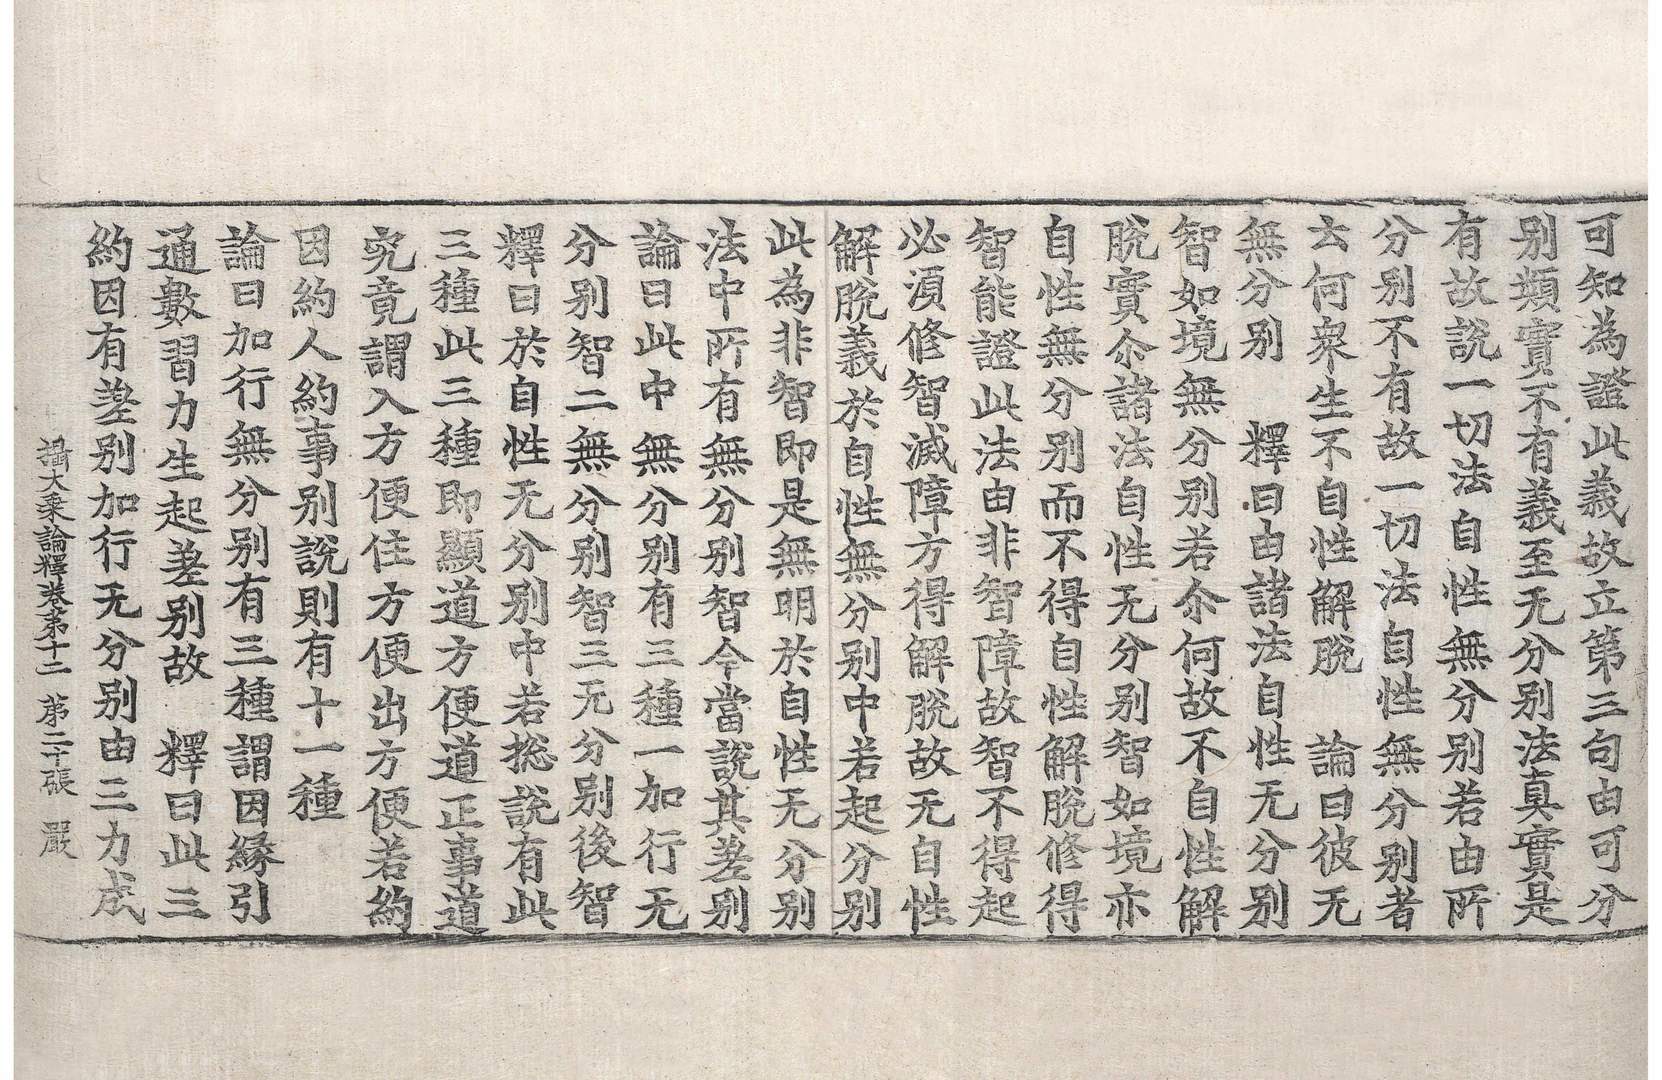 可知為證此義故立第三句由可分
别類實不有義至无分别法真實是
有故說一切法自性無分别若由所
分别不有故一切法自性無分别者
云何衆生不自性解脫　論曰彼无
無分别　釋曰由諸法自性无分别
智如境無分别若尒何故不自性解
脫實尒諸法自性无分别智如境亦
自性無分别而不得自性解脫修得
智能證此法由非智障故智不得起
必須修智滅障方得解脫故无自性
解脫義於自性無分别中若起分别
此為非智即是無明於自性无分别
法中所有無分别智今當說其差别
論曰此中無分别有三種一加行无
分别智二無分别智三无分别後智
釋曰於自性无分别中若捴說有此
三種此三種即顯道方便道正事道
究竟謂入方便住方便出方便若約
因約人約事别說則有十一種
論曰加行無分别有三種謂因緣引
通數習力生起差别故　釋曰此三
約因有差别加行无分别由三力成
攝大乗論釋卷第十二　第二十張　嚴